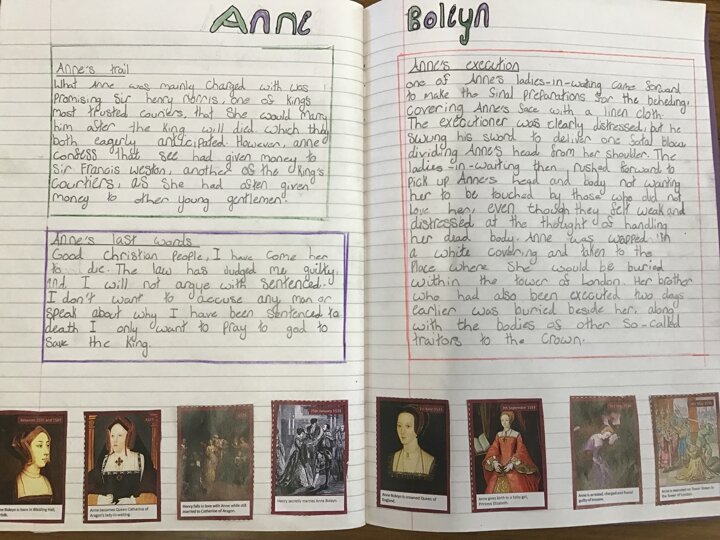 Anne Boleyn
Anne's trail
What Anne was mainly charged with was
promising Sir henry norris, one of kings
most trusted couriers, that she would marry
him after the king will died. which they
both eagerly anticipated. However, anne
confess that see had given money to
Sir Francis weston, another of the king's
Courtiers, as she had often given
money to other young gentlemen.
Anne's last words
Good christian people, I have come her
to die. The law has Judged me guilty,
and I will not argue with sentenced.
I don't want to accuse any man or
speak about why I have been sentenced to
death I only want to pray to god to
save the king.
Anne's execution
one of Anne's ladies-in-waiting came forward
to make the final preparations for the beheding,
covering Anne's face with a linen cloth.
The executioner was clearly distressed, but he
swung his sword to deliver one fatal blow
dividing Anne's head from her shoulder. The
ladies-in-waiting then rushed forward to
pick up Anne's head and body not wanting
her to be touched by those who did not
love her, even though they felt weak and
distressed at the thought of handling
her dead body. Anne was wapped in
a white covering and taken to the
place where she would be buried
within the tower of London. Her brother
who had also been executed two days
earlier was buried beside her, along
with the bodies of other so-called
traitors to the crown.
Between 1501 and 1507
Anne Boleyn is born in Blickling Hall,
Anne becomes Queen Catherine of
Aragon's lady-in-waiting.
Henry falls in love with Anne while still
married to Catherine of Aragon.
25th January 1533
Henry secretly marries Anne Boleyn.
Anne Boleyn is crowned Queen of
England.
7th September 1533
Anne gives birth to a baby girl,
Princess Elizabeth.
Anne is arrested, charged and found
guilty of treason.
Anne is executed on Tower Green in
the Tower of London.